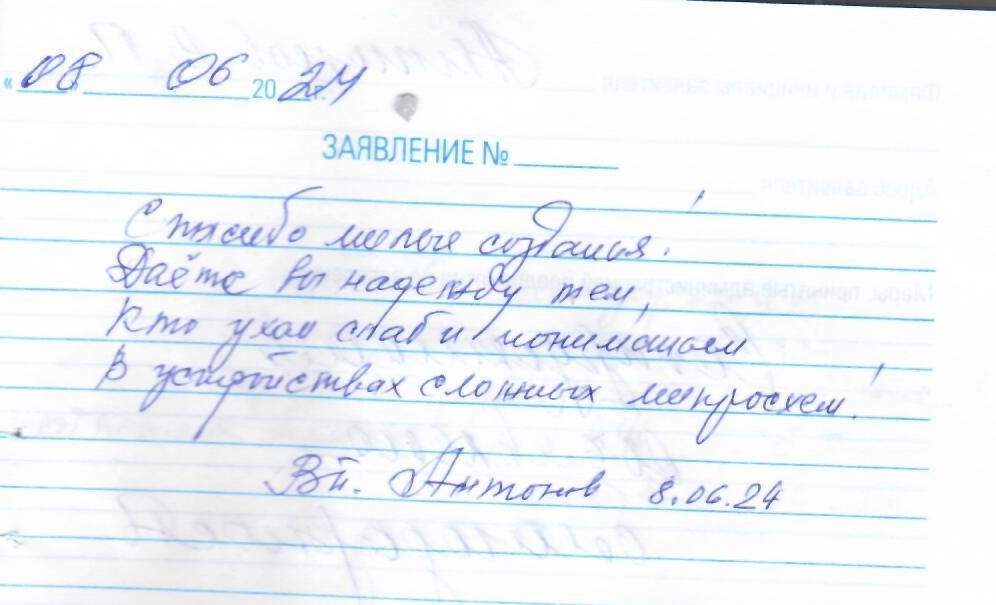 « 08 06 2024 г.
ЗАЯВЛЕНИЕ №
Спасибо милые созданья!
Даёте вы надежду тем
Кто ухом слаб и пониманьем
В устройствах сложных микросхем!
Вп. Антонов 8.06.24